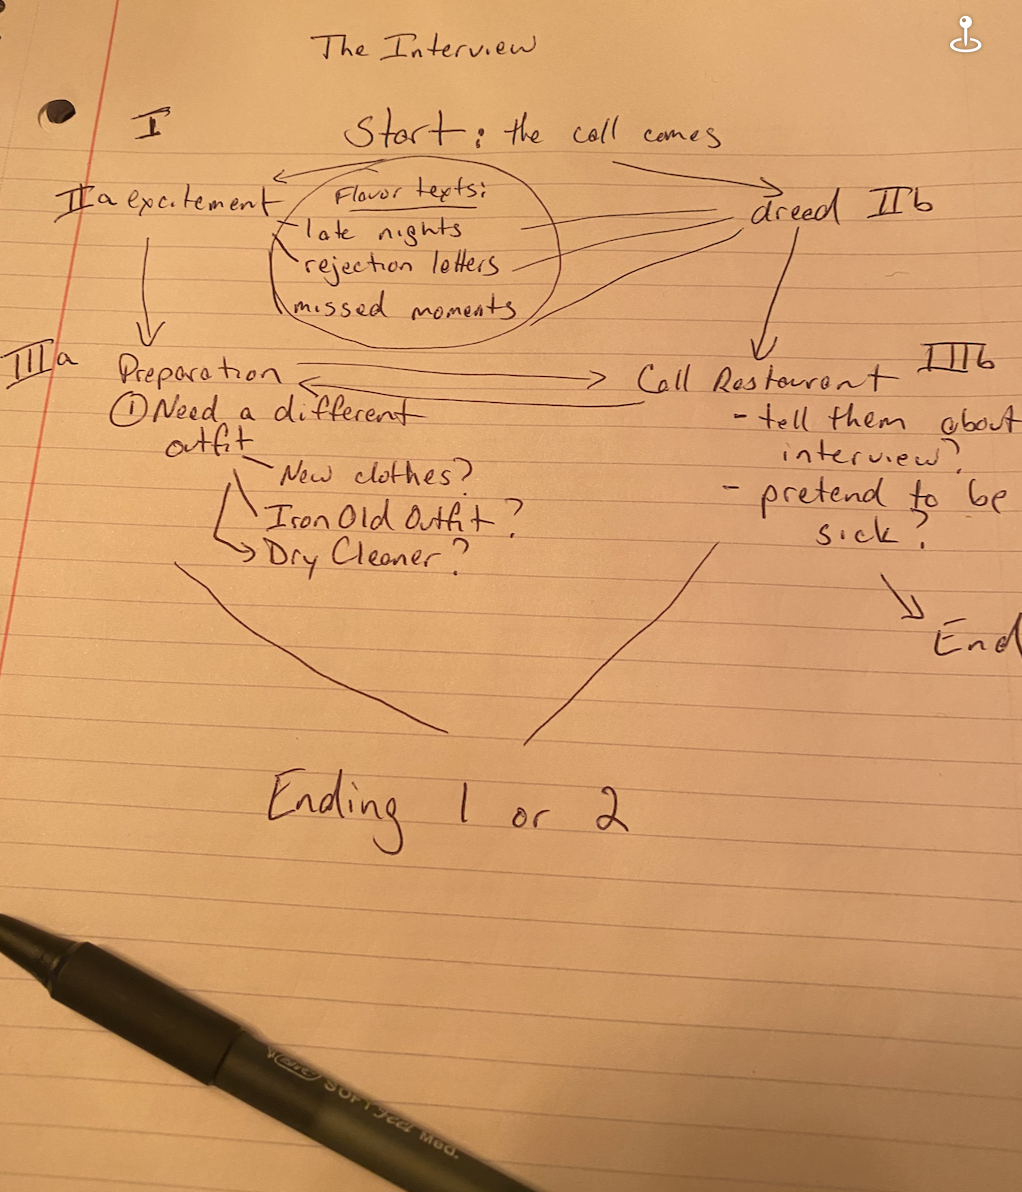 The Interview
I
Start: the call comes
IIa excitement
Flavor texts:
late nights
rejection letters
missed moments
dreed IIb
IIIa
Preparation
① Need a different
outfit
New clothes?
Iron Old Outfit?
Dry Cleaner?
Call Restaurant IIIb
- tell them about
interview?
- pretend to be
sick?
End
Ending 1 or 2
SOFT Feel Med.